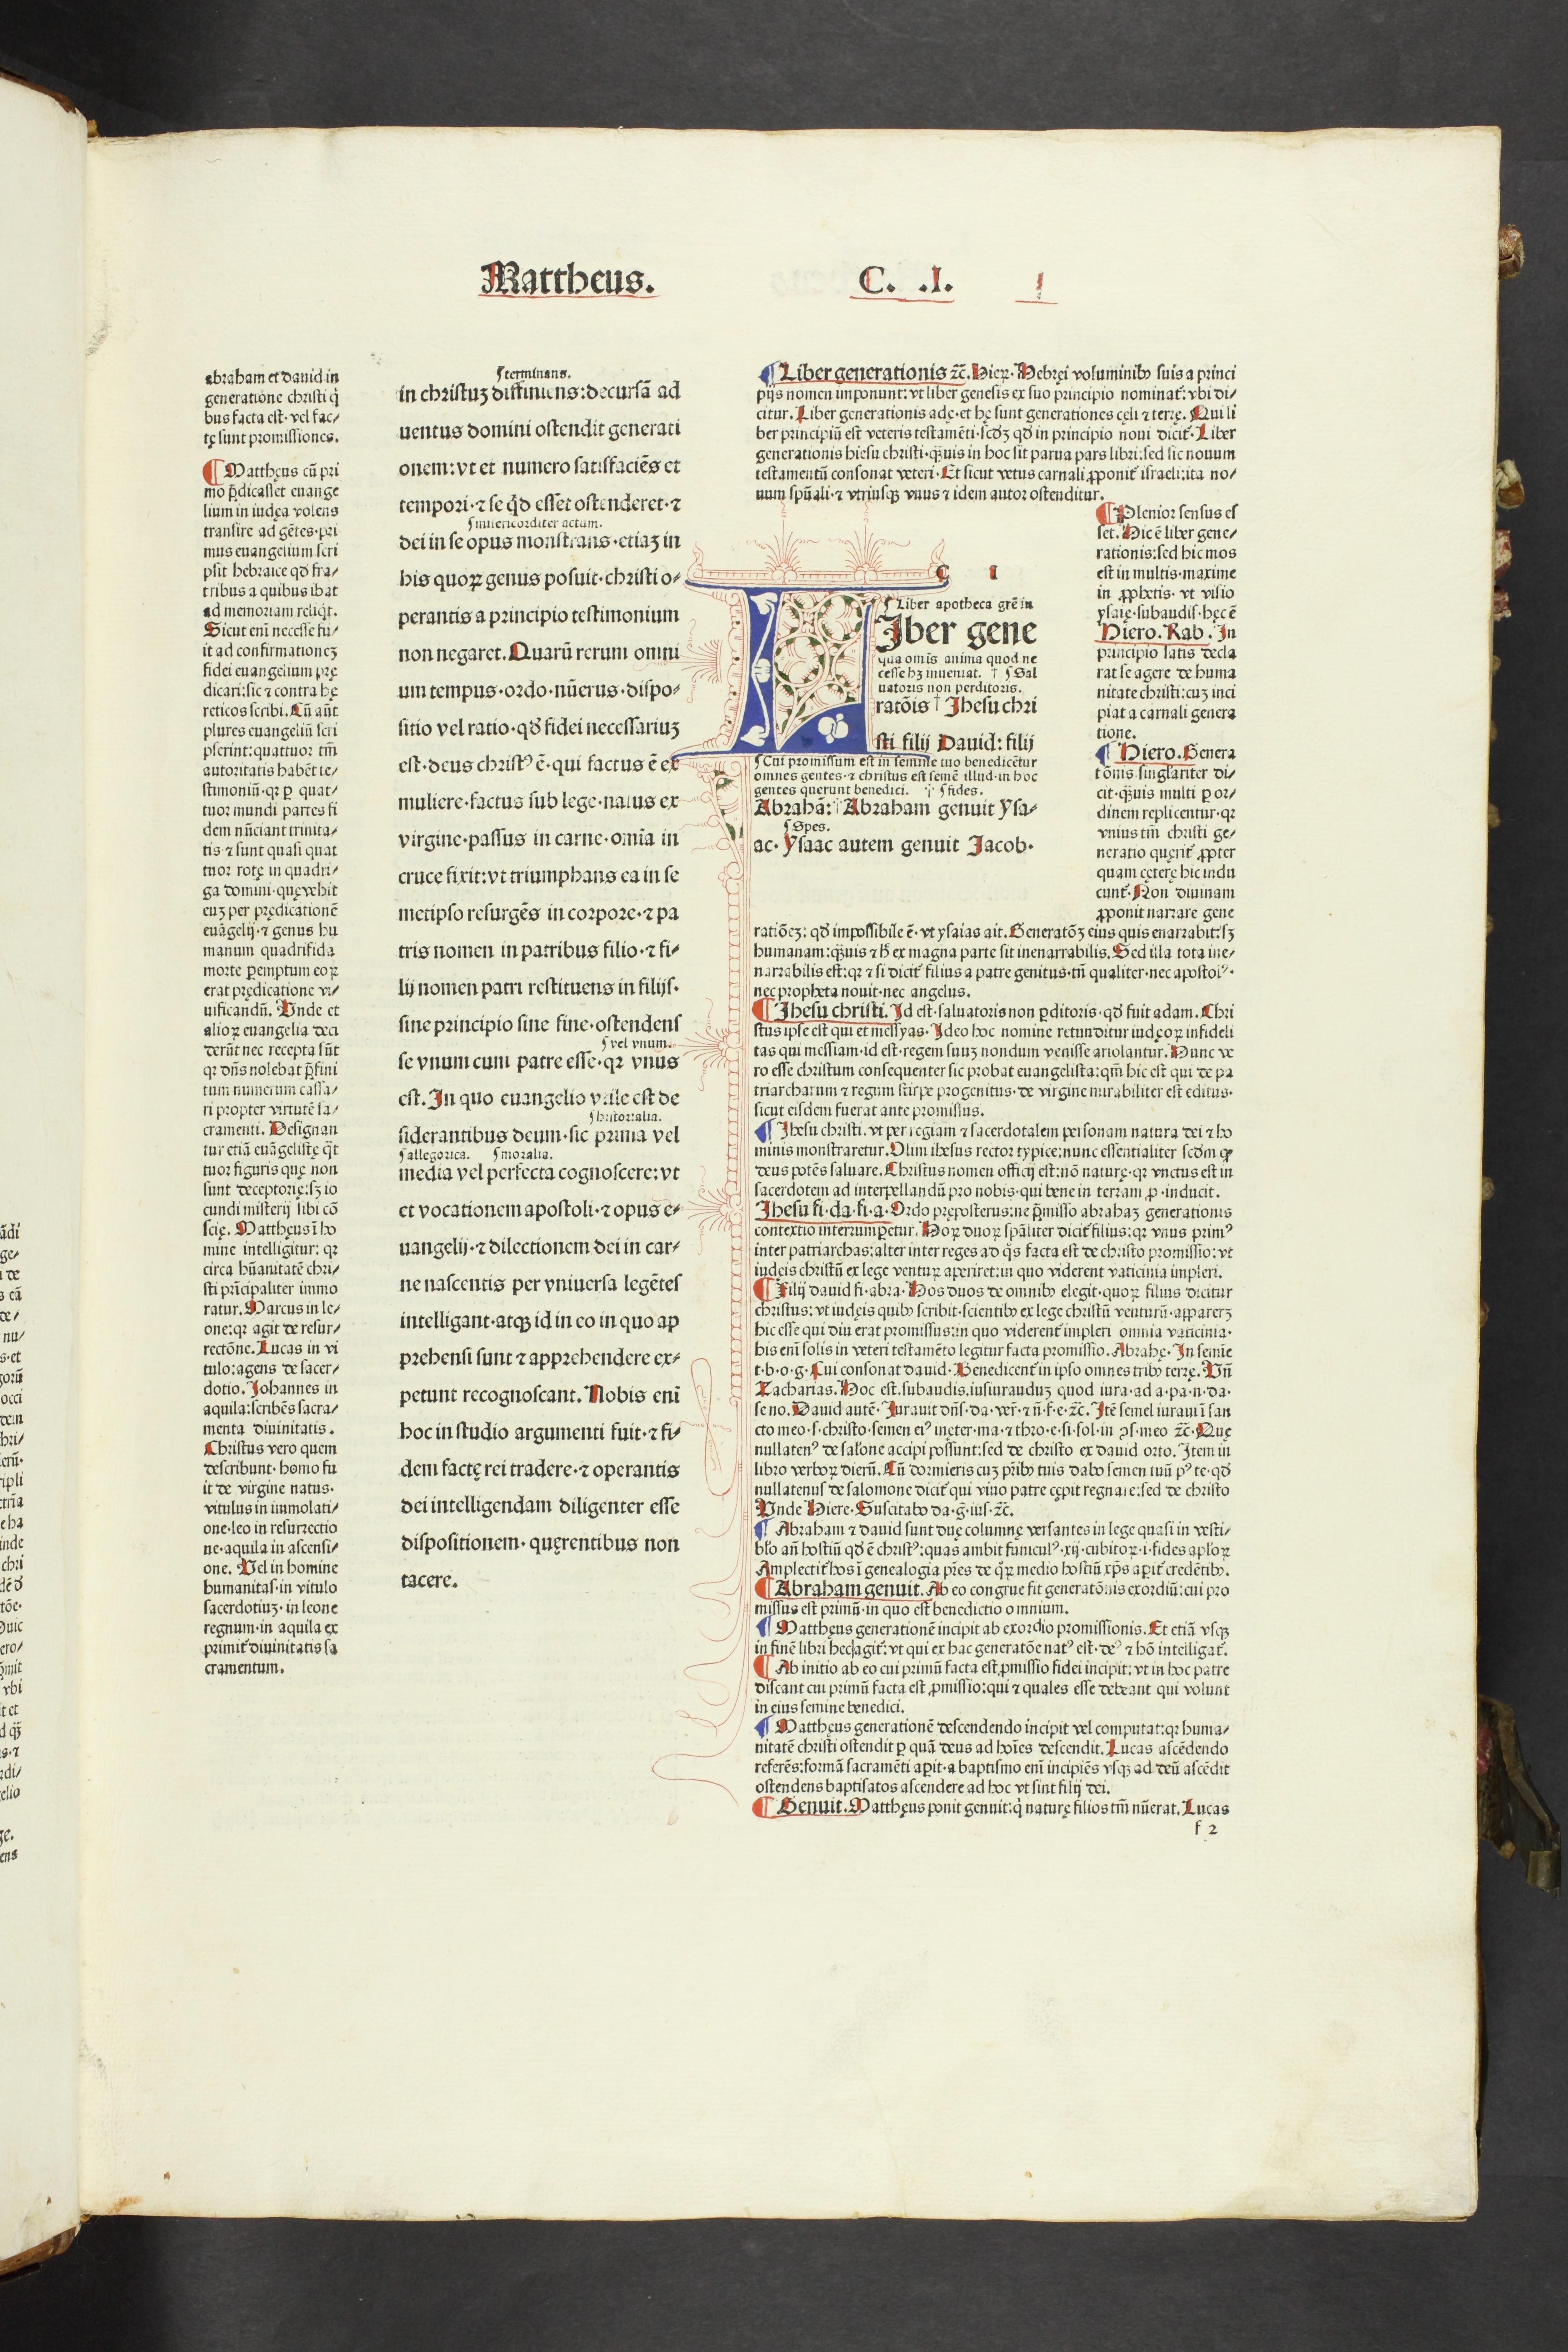 Mattheus. C. .I. 1
abraham et dauid in
generatione christi q̄
bus facta est· vel fac⸗
tę sunt promissiones.
Matthęus cū pri
mo p̄dicasset euange
lium in iudęa volens
transire ad gētes·pri
mus euangelium scri
psit hebraice qd̄ fra⸗
tribus a quibus ibat
ad memoriam reliq̄t.
Sicut eni necesse fu⸗
it ad confirmationeʒ
fidei euangelium prę
dicari:sic ⁊ contra hę
reticos scribi. Cū aūt
plures euangeliū scri
pserint:quattuor tm̄
autoritatis habēt te⸗
stimoniū·qr p quat⸗
tuor mundi partes fi
dem nūciant trinita⸗
tis·⁊ sunt quasi quat
tuor rotę in quadri⸗
ga domini·quę vehit
euʒ per prędicationē
euāgelij·⁊ genus hu
manum quadrifida
morte pemptum eoꝝ
erat prędicatione vi⸗
uificandū. Unde et
alioꝝ euangelia deci
derūt nec recepta sūt
qr dn̄s nolebat p̄fini
tum numerum cassa⸗
ri propter virtutē sa⸗
cramenti. Designan
tur etiā euāgelistę q̄t
tuor figuris quę non
sunt deceptorię:sʒ io
cundi misterij sibi cō
scię. Matthęus ī ho
mine intelligitur: qr
circa hūanitatē chri⸗
sti prīcipaliter immo
ratur. Marcus in le⸗
one:qr agit de resur⸗
rectōne. Lucas in vi
tulo:agens de sacer⸗
dotio. Johannes in
aquila:scribēs sacra⸗
menta diuinitatis.
Christus vero quem
describunt·homo fu
it de virgine natus·
vitulus in immolati⸗
one·leo in resurrectio
ne·aquila in ascensi⸗
one. Uel in homine
humanitas·in vitulo
sacerdotiuʒ·in leone
regnum·in aquila ex
primit̄ diuinitatis sa
cramentum.
terminans.
in christuʒ diffiniens:decursā ad
uentus domini ostendit generati
onem:vt et numero satisfaciēs et
tempori·⁊ se qd̄ esset ostenderet·⁊
misericorditer actum.
dei in se opus monstrans·etiaʒ in
his quoꝝ genus posuit·christi o⸗
perantis a principio testimonium
non negaret. Quarū rerum omni
um tempus·ordo·nūerus·dispo⸗
sitio vel ratio·qd̄ fidei necessariuʒ
est·deus christꝰ ē·qui factus ē ex
muliere·factus sub lege·natus ex
virgine·passus in carne·omīa in
cruce fixit:vt triumphans ea in se
metipso resurgēs in corpore·⁊ pa
tris nomen in patribus filio·⁊ fi⸗
lij nomen patri restituens in filijs·
sine principio sine fine·ostendens
vel vnum.
se vnum cum patre esse·qr vnus
est. In quo euangelio vtile est de
historialia.
siderantibus deum·sic prima vel
allegorica. moralia.
media vel perfecta cognoscere:vt
et vocationem apostoli·⁊ opus e⸗
uangelij·⁊ dilectionem dei in car⸗
ne nascentis per vniuersa legētes
intelligant·atqʒ id in eo in quo ap
prehensi sunt ⁊ apprehendere ex⸗
petunt recognoscant. Nobis enī
hoc in studio argumenti fuit·⁊ fi⸗
dem factę rei tradere·⁊ operantis
dei intelligendam diligenter esse
dispositionem·quęrentibus non
tacere.
Liber generationis ⁊c̄. Hieꝝ· Hebręi voluminibꝰ suis a princi
pijs nomen imponunt: vt liber genesis ex suo principio nominat̄: vbi di⸗
citur. Liber generationis adę·et hę sunt generationes cęli ⁊ terrę. Qui li
ber principiū est veteris testamēti·scd̄ʒ qd̄ in principio noui dicit̄. Liber
generationis hiesu christi·q̄uis in hoc sit parua pars libri:sed sic nouum
testamentū consonat veteri· Et sicut vetus carnali ꝓponit̄ israeli:ita no⸗
uum spūali·⁊ vtriusqʒ vnus ⁊ idem autor ostenditur.
Plenior sensus es
set. Hic ē liber gene⸗
rationis:sed hic mos
est in multis·maxime
in ꝓphetis· vt visio
ysaię·subaudis·hęc ē
Hiero. Rab. In
principio satis decla
rat se agere de huma
nitate christi:cuʒ inci
piat a carnali genera
tione.
Hiero. Genera
tōnis singlariter di⸗
cit·q̄uis multi p or⸗
dinem replicentur·qr
vnius tm̄ christi ge⸗
neratio querit̄ ꝓpter
quam cęterę hic indu
cunt̄. Non diuinam
ꝓponit narrare gene
C I
Liber apotheca grē in
Iber gene
qua omīs anima quod ne
cesse hʒ inueniat. † Sal
uatoris non perditoris.
ratōis † Jhesu chri
sti filij Dauid: filij
Cui promissum est in semine tuo benedicētur
omnes gentes·⁊ christus est semē illud·in hoc
gentes querunt benedici. † fides.
Abrahā: † Abraham genuit ysa⸗
Spes.
ac· ysaac autem genuit Jacob·
ratiōeʒ: qd̄ impossibile ē· vt ysaias ait. Generatōʒ eius quis enarrabit:sʒ
humanam:q̄uis ⁊ h̄ ex magna parte sit inenarrabilis. Sed illa tota ine⸗
narrabilis est:qr ⁊ si dicit̄ filius a patre genitus·tn̄ qualiter·nec apostolꝰ·
nec propheta nouit·nec angelus.
Jhesu christi. Id est·saluatoris non pditoris·qd̄ fuit adam. Chri
stus ipse est qui et messyas· Ideo hoc nomine retunditur iudęoꝝ infideli
tas qui messiam·id est·regem suuʒ nondum venisse ariolantur. Nunc ve
ro esse christum consequenter sic probat euangelista:qm̄ hic est qui de pa
triarcharum ⁊ regum stirpe progenitus·de virgine mirabiliter est editus·
sicut eisdem fuerat ante promissus.
Jhesu christi. vt per regiam ⁊ sacerdotalem personam natura dei ⁊ ho
minis monstraretur. Olim ihesus rector typice:nunc essentialiter scd̄m ꝙ
deus potēs saluare. Christus nomen officij est:nō naturę·qr vnctus est in
sacerdotem ad interpellandū pro nobis·qui bene in terram ꝓ·inducit.
Jhesu fi·da·fi·a· Ordo pręposterus:ne p̄misso abrahaʒ generationis
contextio interrumpetur. Hoꝝ duoꝝ spāliter dicit̄ filius:qr vnus primꝰ
inter patriarchas:alter inter reges ad q̄s facta est de christo promissio:vt
iudęis christū ex lege ventuꝝ aperiret:in quo viderent vaticinia impleri.
Filij dauid fi·abra· Hos duos de omnibꝰ elegit·quoꝝ filius dicitur
christus: vt iudęis quibꝰ scribit·scientibꝰ ex lege christū venturū·appareʒ
hic esse qui diu erat promissus:in quo viderent̄ impleri omnia vaticinia·
his enī solis in veteri testamēto legitur facta promissio. Abrahę. In semīe
t·b·o·g· Cui consonat dauid· Benedicent̄ in ipso omnes tribꝰ terrę. Un̄
Zacharias. Hoc est·subaudis·iusiuranduʒ quod iura·ad a·pa·n·da·
se no. Dauid autē· Jurauit dn̄s·da·ver̄·⁊ n̄·f·e·⁊c̄. Itē semel iuraui ī san
cto meo·s·christo·semen eiꝰ ineter·ma·⁊ thro·e·si·sol·in ɔs·meo ⁊c̄· Quę
nullatenꝰ de salōne accipi possunt:sed de christo ex dauid orto. Item in
libro verboꝝ dierū. Cū dormieris cuʒ pr̄ibꝰ tuis dabo semen tuū pꝰ te·qd̄
nullatenus de salomone dicit̄ qui viuo patre cępit regnare:sed de christo
Unde Hiere· Suscitabo da·ḡ·ius·⁊c̄.
Abraham ⁊ dauid sunt duę columnę versantes in lege quasi in vesti⸗
blo an̄ hostiū qd̄ ē christꝰ:quas ambit funiculꝰ·xij·cubitoꝝ·i·fides apl̄oꝝ
Amplectit̄ hos ī genealogia pr̄es de q̄ꝝ medio hostiū xp̄s apit̄ credētibꝰ.
Abraham genuit. Ab eo congrue fit generatōnis exordiū:cui pro
missus est primū·in quo est benedictio omnium.
Matthęus generationē incipit ab exordio promissionis. Et etiā vsqʒ
in finē libri hec agit̄: vt qui ex hac generatōe natꝰ est·deꝰ ⁊ hō intelligat̄.
Ab initio ab eo cui primū facta est ꝓmissio fidei incipit: vt in hoc patre
discant cui primū facta est ꝓmissio:qui ⁊ quales esse debeant qui volunt
in eius semine benedici.
Matthęus generationē descendendo incipit vel computat:qr huma⸗
nitatē christi ostendit p quā deus ad hoīes descendit. Lucas ascēdendo
referēs:formā sacramēti apit·a baptismo enī incipiēs vsqʒ ad deū ascēdit
ostendens baptisatos ascendere ad hoc vt sint filij dei.
Genuit. Matthęus ponit genuit:q̄ naturę filios tm̄ nūerat. Lucas
f 2